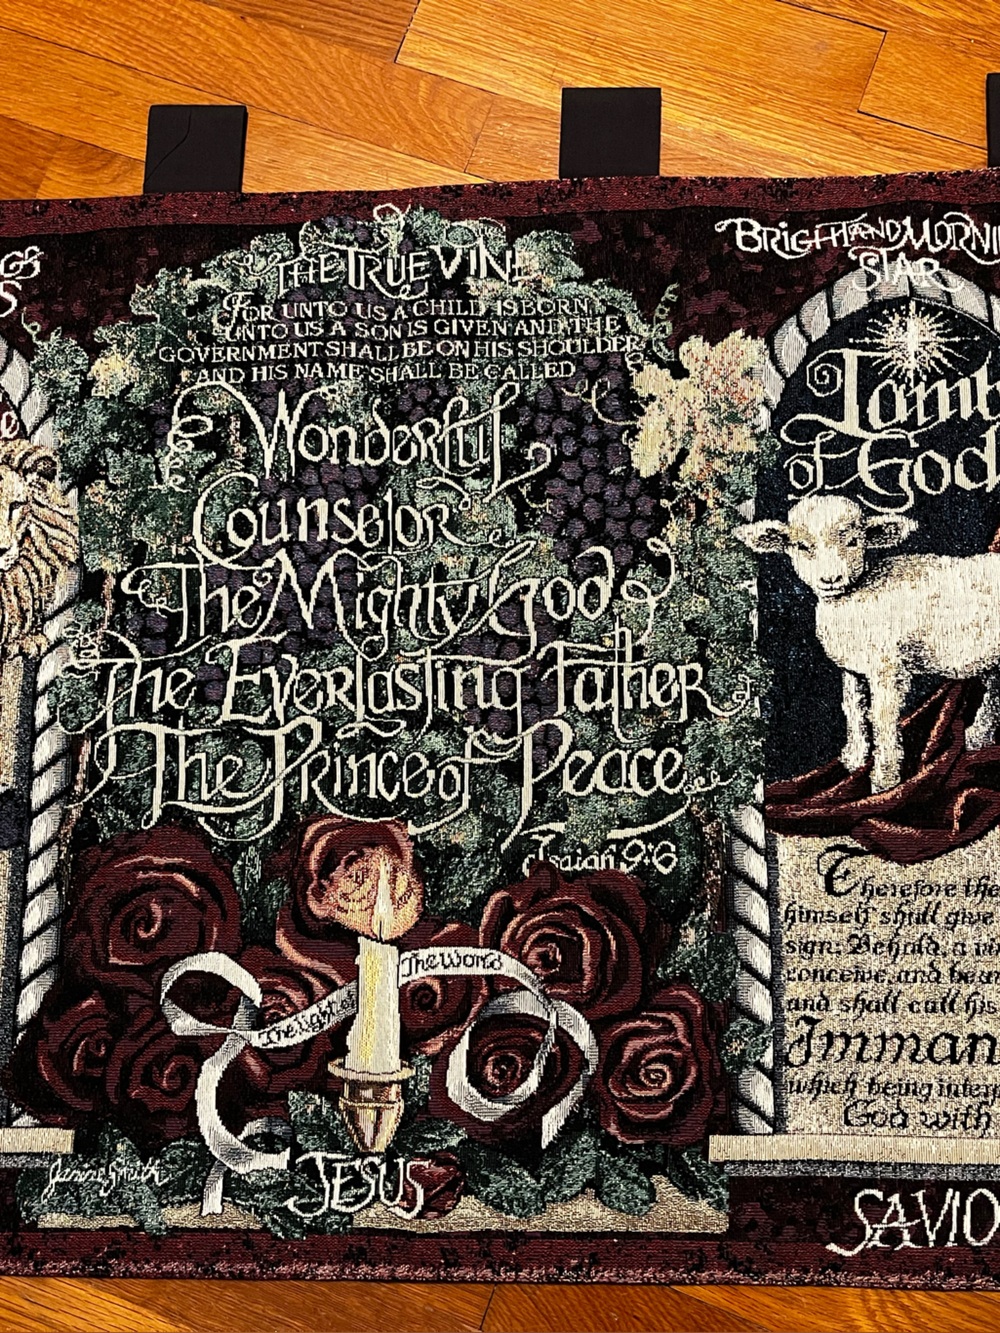 THE TRUE VINE
FOR UNTO US A CHILD IS BORN,
UNTO US A SON IS GIVEN AND THE
GOVERNMENT SHALL BE ON HIS SHOULDER
AND HIS NAME SHALL BE CALLED
Wonderful
Counselor
The Mighty God
The Everlasting Father
The Prince of Peace
Isaiah 9:6
The Light of The World
JESUS
Janine Smith
BRIGHT AND MORNI
STAR
Lamb
of God
Therefore the
himself shall give
sign: Behold, a vi
conceive, and bear
and shall call his
Imman
which being interp
God with
SAVIO